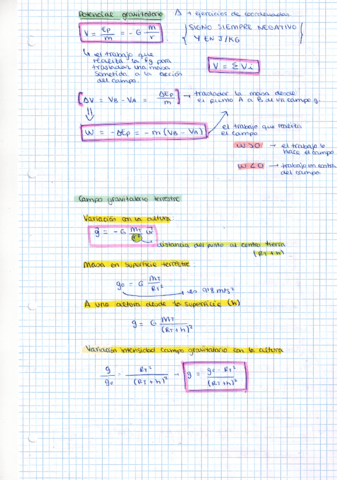 Potencial gravitatorio Δ + ejercicios de coordenadas
V = Ep/m = - G m/r
{ SIGNO SIEMPRE NEGATIVO
Y EN J/KG }
↳ el trabajo que
realiza la Fg para
trasladar una masa
sometida a la acción
del campo
V = Σ Vi
[ΔV = VB - VA = ΔEp/m] → trasladar la masa desde
el punto A a B de un campo g.
W = -ΔEp = -m (VB - VA)
el trabajo que realiza
el campo
W>0 → el trabajo lo
hace el campo
W<0 → trabajo en contra
del campo
Campo gravitatorio terrestre
Variación con la altura
distancia del punto al centro tierra
(RT + h)
Masa en superficie terrestre
g0 = G MT/RT²
→ es 9'8 m/s²
A una altura desde la superficie (h)
g = G MT/(RT+h)²
Variación intensidad campo gravitatorio con la altura
g/g0 = RT²/(RT+h)² → g = g0 · RT²/(RT+h)²